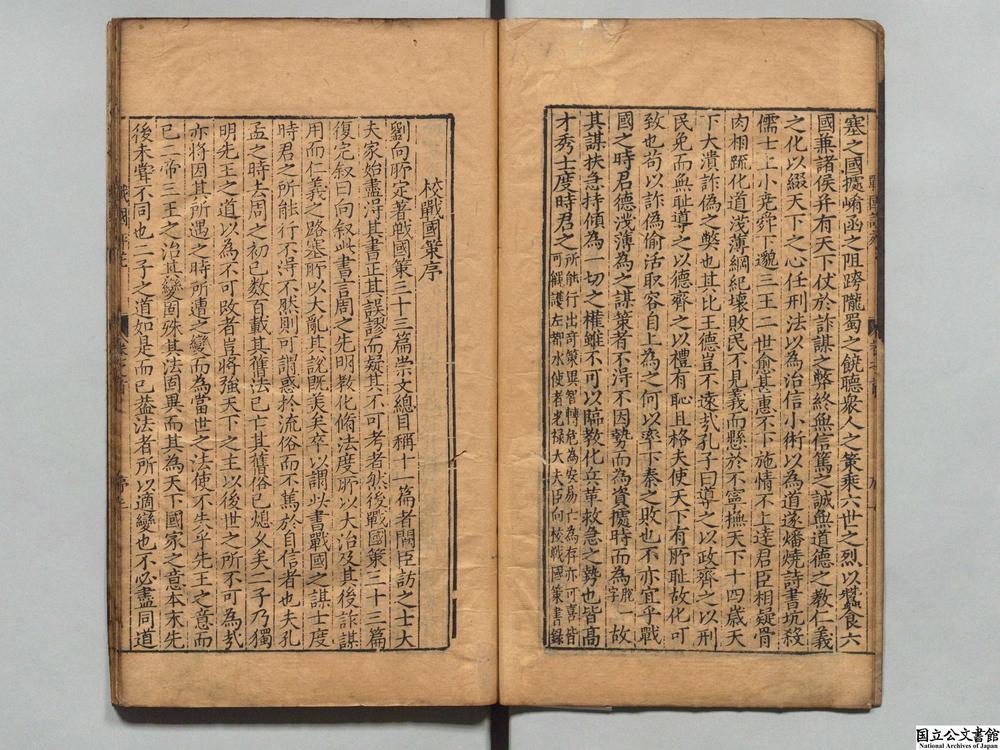 塞之國據崤函之阻跨隴蜀之饒聽衆人之策乘六世之烈以蠶食六
國兼諸侯并有天下仗於詐謀之弊終無信篤之誠無道德之教仁義
之化以綴天下之心任刑法以為治信小術以為道遂燔燒詩書坑殺
儒士上小堯舜下邈三王二世愈甚惠不下施情不上達君臣相疑骨
肉相䟽化道淺薄綱紀壞敗民不見義而懸於不寧撫天下十四歲天
下大潰詐偽之弊也其比王德豈不遠㢤孔子曰導之以政齊之以刑
民免而無耻導之以德齊之以禮有耻且格夫使天下有所耻故化可
致也茍以詐偽偷活取容自上為之何以率下秦之敗也不亦宜乎戰
國之時君德淺薄為之謀策者不得不因勢而為資據時而為脱一字故
其謀扶急持傾為一切之權雖不可以臨教化兵革救急之勢也皆高
才秀士度時君之所能行出奇策異智轉危為安易亡為存亦可喜皆可觀護左都水使者光祿大夫臣向校戰國策書錄
校戰國策序
劉向所定著戰國策三十三篇崇文總目稱十一篇者闕臣訪之士大
夫家始盡得其書正其誤謬而疑其不可考者然後戰國策三十三篇
復完叙曰向叙此書言周之先明教化脩法度所以大治及其後詐謀
用而仁義之路塞所以大亂其説既美矣卒以謂此書戰國之謀士度
時君之所能行不得不然則可謂惑於流俗而不篤於自信者也夫孔
孟之時去周之初已数百載其舊法已亡其舊俗已熄乆矣二子乃獨
明先王之道以為不可改者豈将強天下之主以後世之所不可為㢤
亦将因其所遇之時所遭之變而為當世之法使不失乎先王之意而
已二帝三王之治其變固殊其法固異而其為天下國家之意本末先
後未嘗不同也二子之道如是而已葢法者所以適變也不必盡同道
国立公文書館
National Archives of Japan